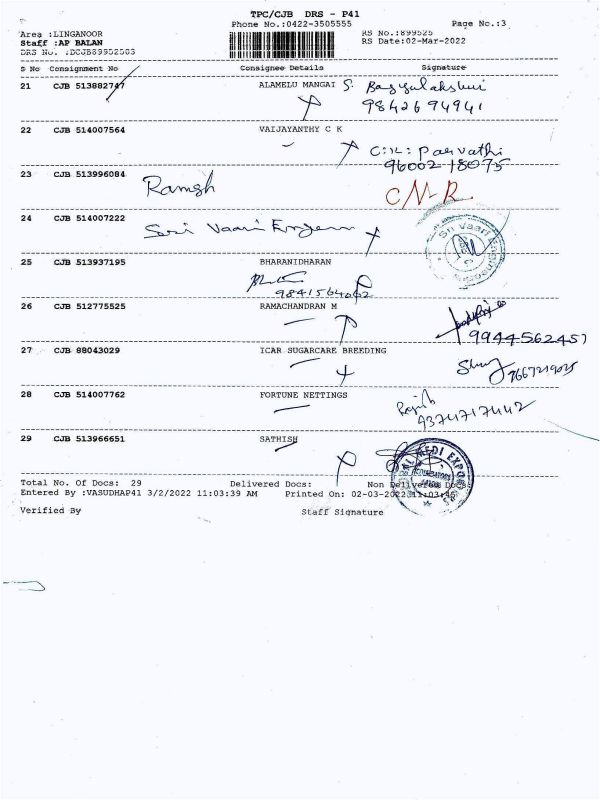 TPC/CJB DRS - P41
Phone No.:0422-3505555
Page No.:3
Area :LINGANOOR
RS No.:899525
Staff :AP BALAN
RS Date:02-Mar-2022
S No Consignment No Consignee Details Signature
21 CJB 513882747 ALAMELU MANGAI S.
9842694941
22 CJB 514007564 VAIJAYANTHY C K
C.K. Parvathi
96002 18075
23 CJB 513996084 Ramesh CN-R
24 CJB 514007222 Sri Vaari Engeen
Sri Vaari Engineers
25 CJB 513937195 BHARANIDHARAN
9841564062
26 CJB 512775525 RAMACHANDRAN M
9944562457
27 CJB 88043029 ICAR SUGARCARE BREEDING
7667219025
28 CJB 514007762 FORTUNE NETTINGS
9374717442
29 CJB 513966651 SATHISH
Total No. Of Docs: 29 Delivered Docs: Non Delivered Docs:
Entered By :VASUDHAP41 3/2/2022 11:03:39 AM Printed On: 02-03-2022 11:03:46
Verified By Staff Signature